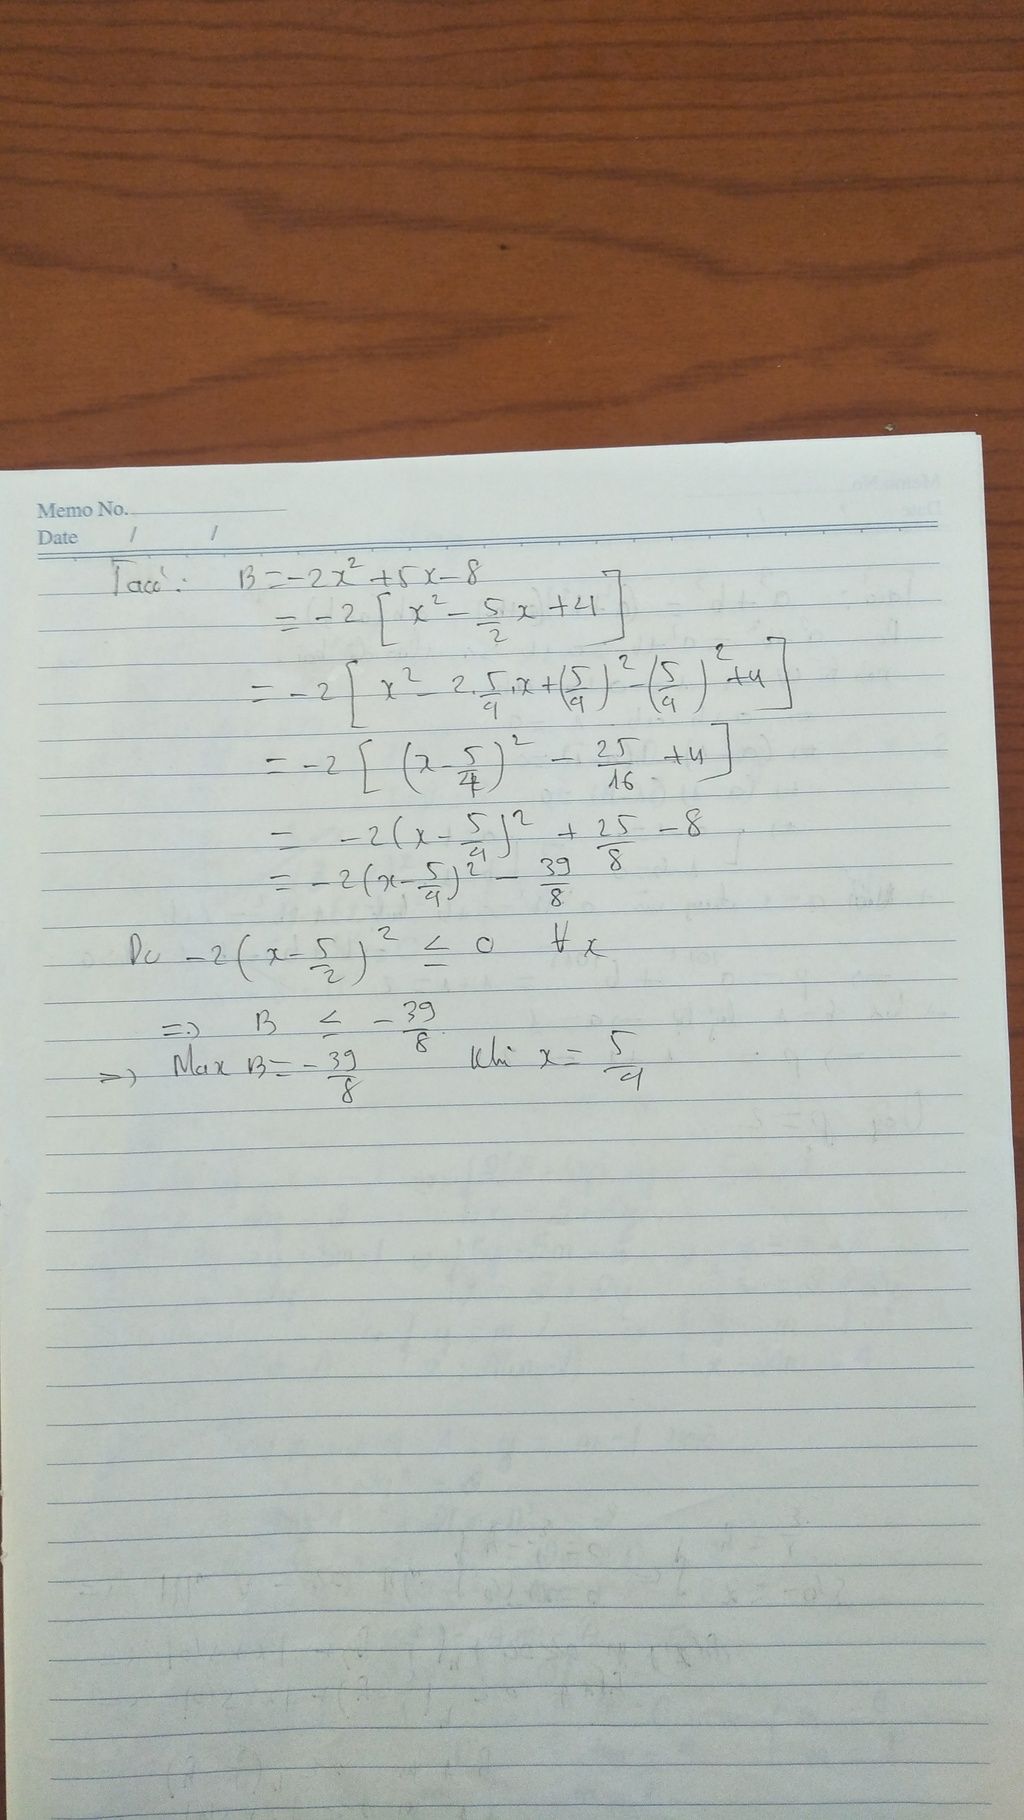 Memo No.
Date / /
Ta có: B = -2x² + 5x - 8
= -2 [ x² - 5/2 x + 4 ]
= -2 [ x² - 2. 5/4 .x + (5/4)² - (5/4)² + 4 ]
= -2 [ (x - 5/4)² - 25/16 + 4 ]
= -2 (x - 5/4)² + 25/8 - 8
= -2 (x - 5/4)² - 39/8
Do -2 (x - 5/2)² ≤ 0 ∀x
=> B ≤ - 39/8
=> Max B = - 39/8 khi x = 5/4